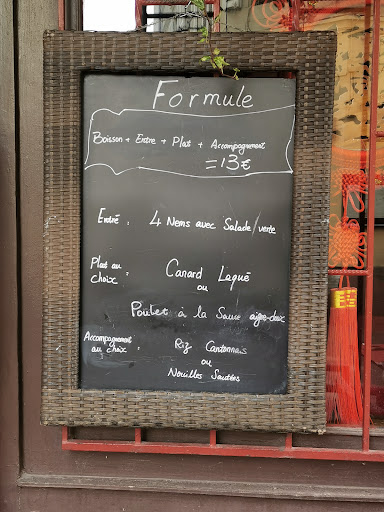 Formule
Boisson + Entre + Plat + Accompagnement
= 13€
Entré : 4 Nems avec Salade verte
Plat au choix : Canard Laqué
ou
Poulet à la Sauce aigre-douce
Accompagnement au choix : Riz Cantonnais
ou
Nouilles Sautées